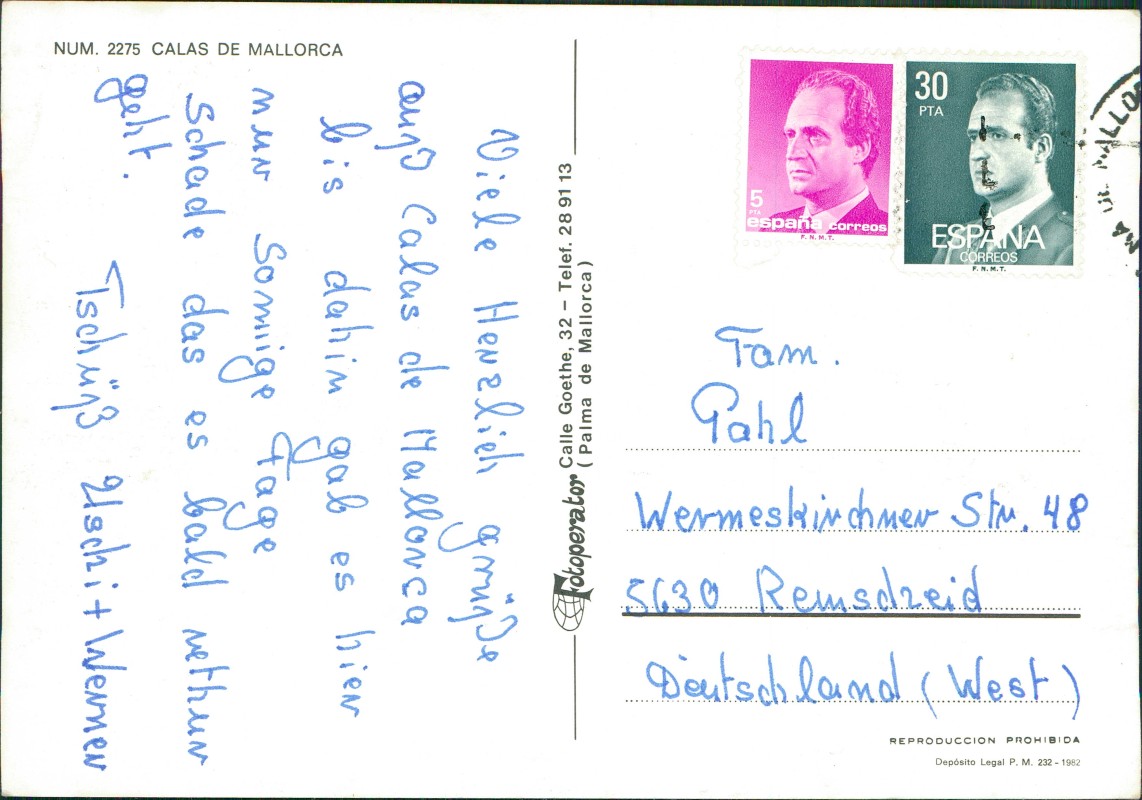 NUM. 2275 CALAS DE MALLORCA
Viele Herzlich grüße
auß Calas de Mallorca
bis dahin gab es hier
nur Sonnige Tage
Schade das es bald rethur
geht.
Tschüß Uschi + Werner
Fotoperator Calle Goethe, 32 - Telef. 28 91 13
(Palma de Mallorca)
5
PTA
españa correos
F.N.M.T.
30
PTA
ESPAÑA
CORREOS
F.N.M.T.
MA DE MALLOR
Fam.
Pahl
Wermeskirchner Str. 48
5630 Remscheid
Deutschland (West)
REPRODUCCION PROHIBIDA
Depósito Legal P. M. 232 - 1982